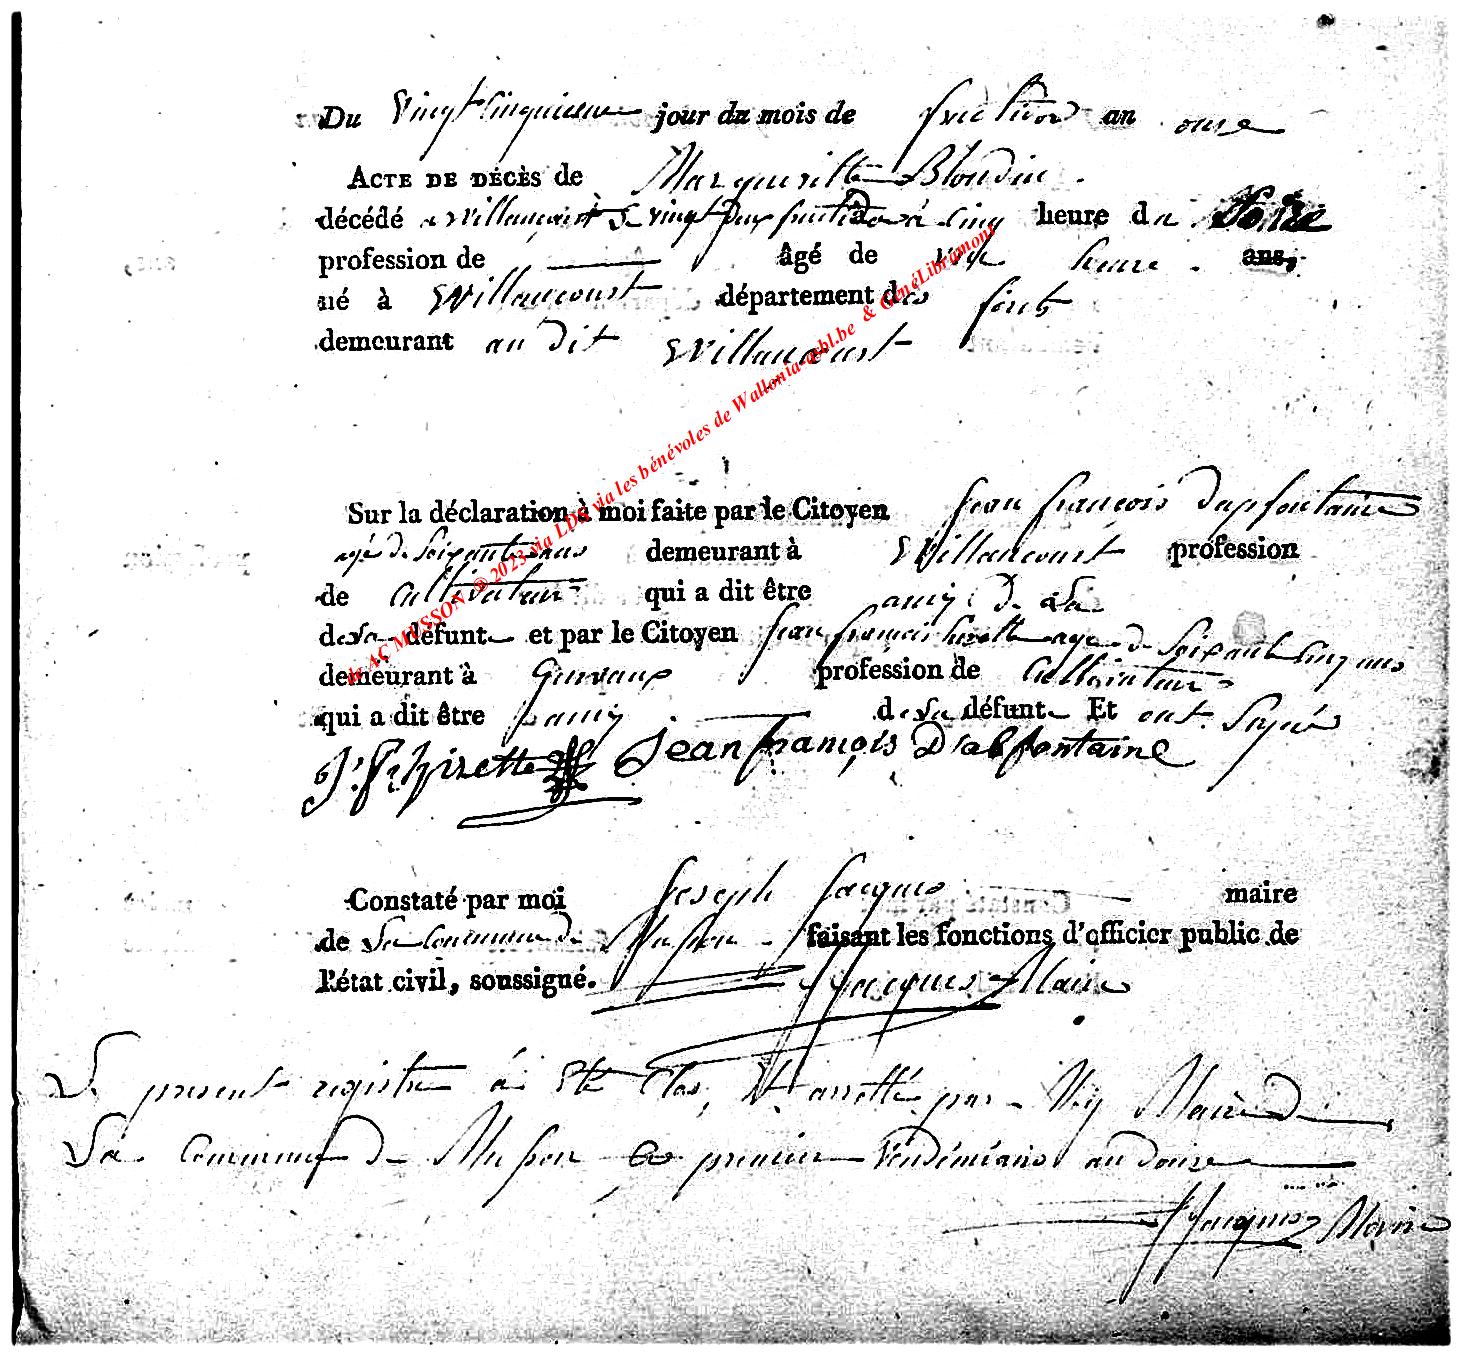 Du Vingt Cinquieme jour du mois de fructidor an onze
ACTE DE DÉCÈS de Margueritte Blondin
décédé a Willancourt le vingt fructidor à cinq heure du Soire
profession de âgé de heure ans,
né à Willancourt département des forêts
demeurant au dit Willancourt
Sur la déclaration à moi faite par le Citoyen Jean françois Dapfontaine
agé de Soixante ans demeurant à Willancourt profession
de Cultivateur qui a dit être amy De La
de La défunte et par le Citoyen Jean françois hizette age de Soixante Cinq ans
demeurant à Gurvaux profession de Cultivateur
qui a dit être amy de La défunte Et ont Signé
J: Fr: hizette Jean françois Dabfontaine
Constaté par moi Joseph Jacques maire
de La Commune De Musson faisant les fonctions d'officier public de
l'état civil, soussigné. JJacques Maire
Le present registre à Eté Clos, Et arretté par Moy Maire De
La Commune De Musson Ce premier Vendémiaire an douze
JJacques Maire
de AC MUSSON @ 2023 via LDS via les bénévoles de Wallonia-asbl.be & GénéLibramont